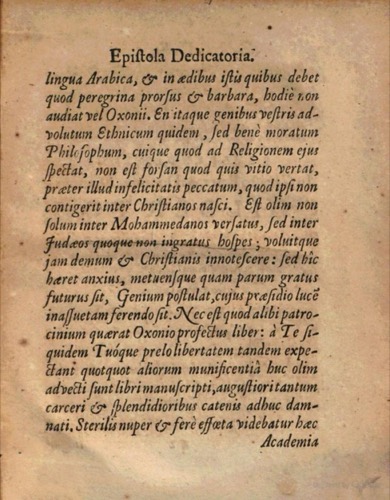 Epiſtola Dedicatoria.
lingua Arabica, & in ædibus iſtis quibus debet
quod peregrina prorſus & barbara, hodiè non
audiat vel Oxonii. En itaque genibus veſtris ad-
volutum Ethnicum quidem, ſed benè moratum
Philoſophum, cuique quod ad Religionem ejus
ſpectat, non eſt forſan quod quis vitio vertat,
præter illud infelicitatis peccatum, quod ipſi non
contigerit inter Chriſtianos naſci. Eſt olim non
ſolum inter Mohammedanos verſatus, ſed inter
Judæos quoque non ingratus hoſpes; voluitque
jam demum & Chriſtianis innoteſcere: ſed hîc
hæret anxius, metuenſque quam parum gratus
futurus ſit, Genium poſtulat, cujus præſidio lucē
inaſſuetam ferendo ſit. Nec eſt quod alibi patro-
cinium quærat Oxonio profectus liber: à Te ſi-
quidem Tuóque prelo libertatem tandem expe-
ctant quotquot aliorum munificentiâ huc olim
advecti ſunt libri manuſcripti, auguſtiori tantum
carceri & ſplendidioribus catenis adhuc dam-
nati. Sterilis nuper & ferè effœta videbatur hæc
Academia